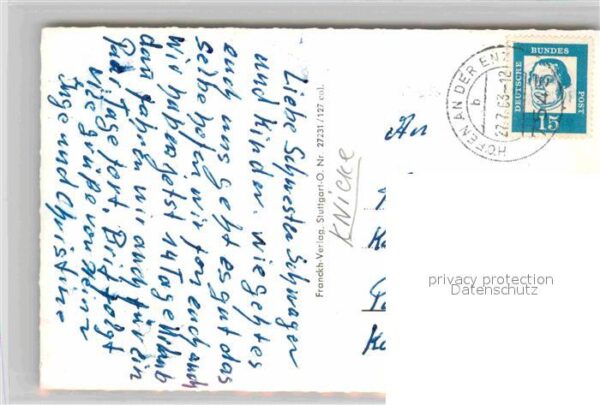 Liebe Schwester Schwager
und Kinder. wie geht es
euch uns geht es gut das
selbe hofen wir fon euch auch
wir haben jetst 14 Tage Urlaub
dan fahren wir auch für ein
paar Tage fort. Brif folgt
viele grüße von Heinz
Inge und Christine
Franckh-Verlag, Stuttgart-O. Nr. 27231/127 col.
KNICKE
HOFEN AN DER ENZ
b
27.7.63-12
DEUTSCHE
BUNDES
POST
15
An
privacy protection
Datenschutz